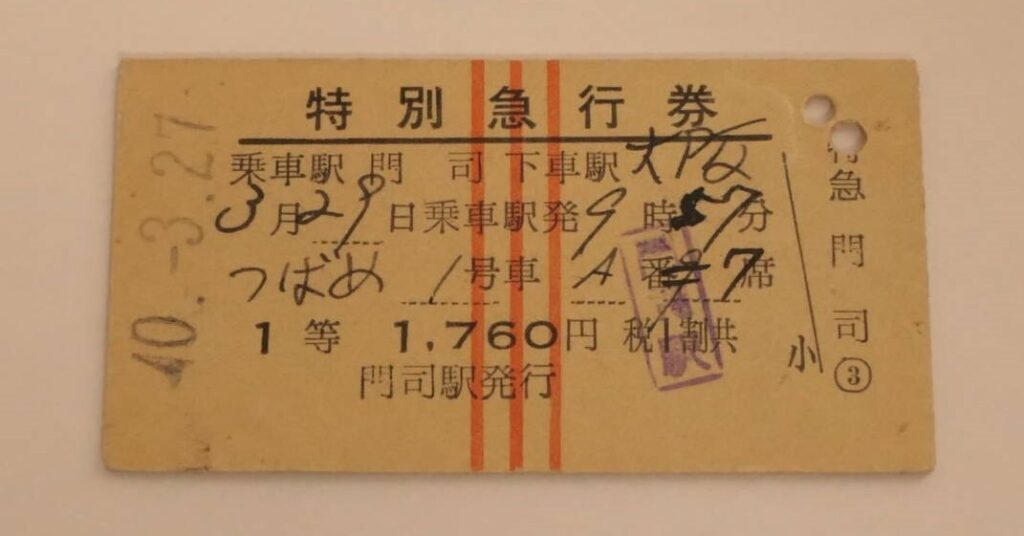 特別急行券
乗車駅 門司 下車駅 大阪
3月29日乗車駅発9時57分
つばめ 1号車 A番 7席
1等 1,760円 税1割共
門司駅発行
40.-3.27
小
特急 門司 ③